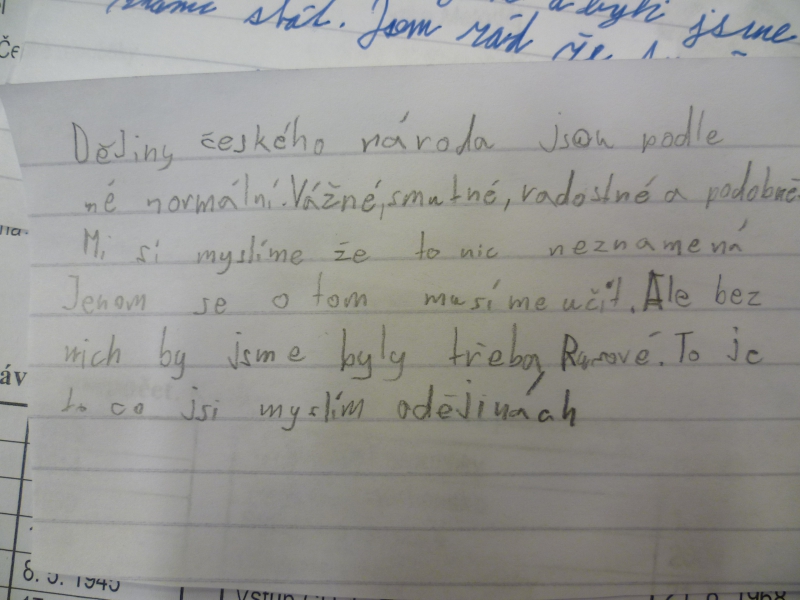 stát. Jsem rád že
jsme
Dějiny českého národa jsou podle
mé normální. Vážné, smutné, radostné a podobně
Mi si myslíme že to nic neznamená
Jenom se o tom musíme učit. Ale bez
nich by jsme byly třeba Rusové. To je
to co jsi myslím odějinách
áv
8. 5. 1945